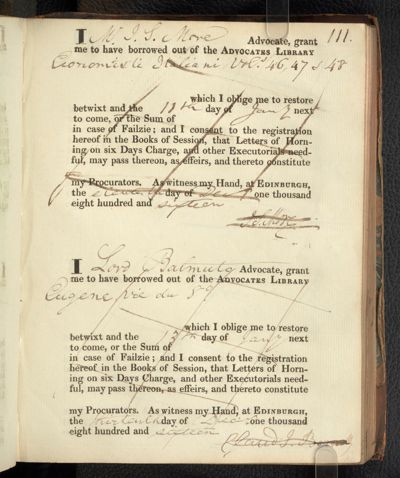 111.
I Mr J. S. More Advocate, grant
me to have borrowed out of the ADVOCATES LIBRARY
Economisti Italiani Vols 46, 47 & 48
which I oblige me to restore
betwixt and the 11th day of Jany next
to come, or the Sum of
in case of Failzie; and I consent to the registration
hereof in the Books of Session, that Letters of Horn-
ing on six Days Charge, and other Executorials need-
ful, may pass thereon, as effeirs, and thereto constitute
my Procurators. As witness my Hand, at EDINBURGH,
the eleventh day of Decr one thousand
eight hundred and sixteen
J. S. More
I Lord Balmuto Advocate, grant
me to have borrowed out of the ADVOCATES LIBRARY
Eugene vie du
which I oblige me to restore
betwixt and the 13th day of Jany next
to come, or the Sum of
in case of Failzie; and I consent to the registration
hereof in the Books of Session, that Letters of Horn-
ing on six Days Charge, and other Executorials need-
ful, may pass thereon, as effeirs, and thereto constitute
my Procurators. As witness my Hand, at EDINBURGH,
the thirteenth day of Decr one thousand
eight hundred and sixteen